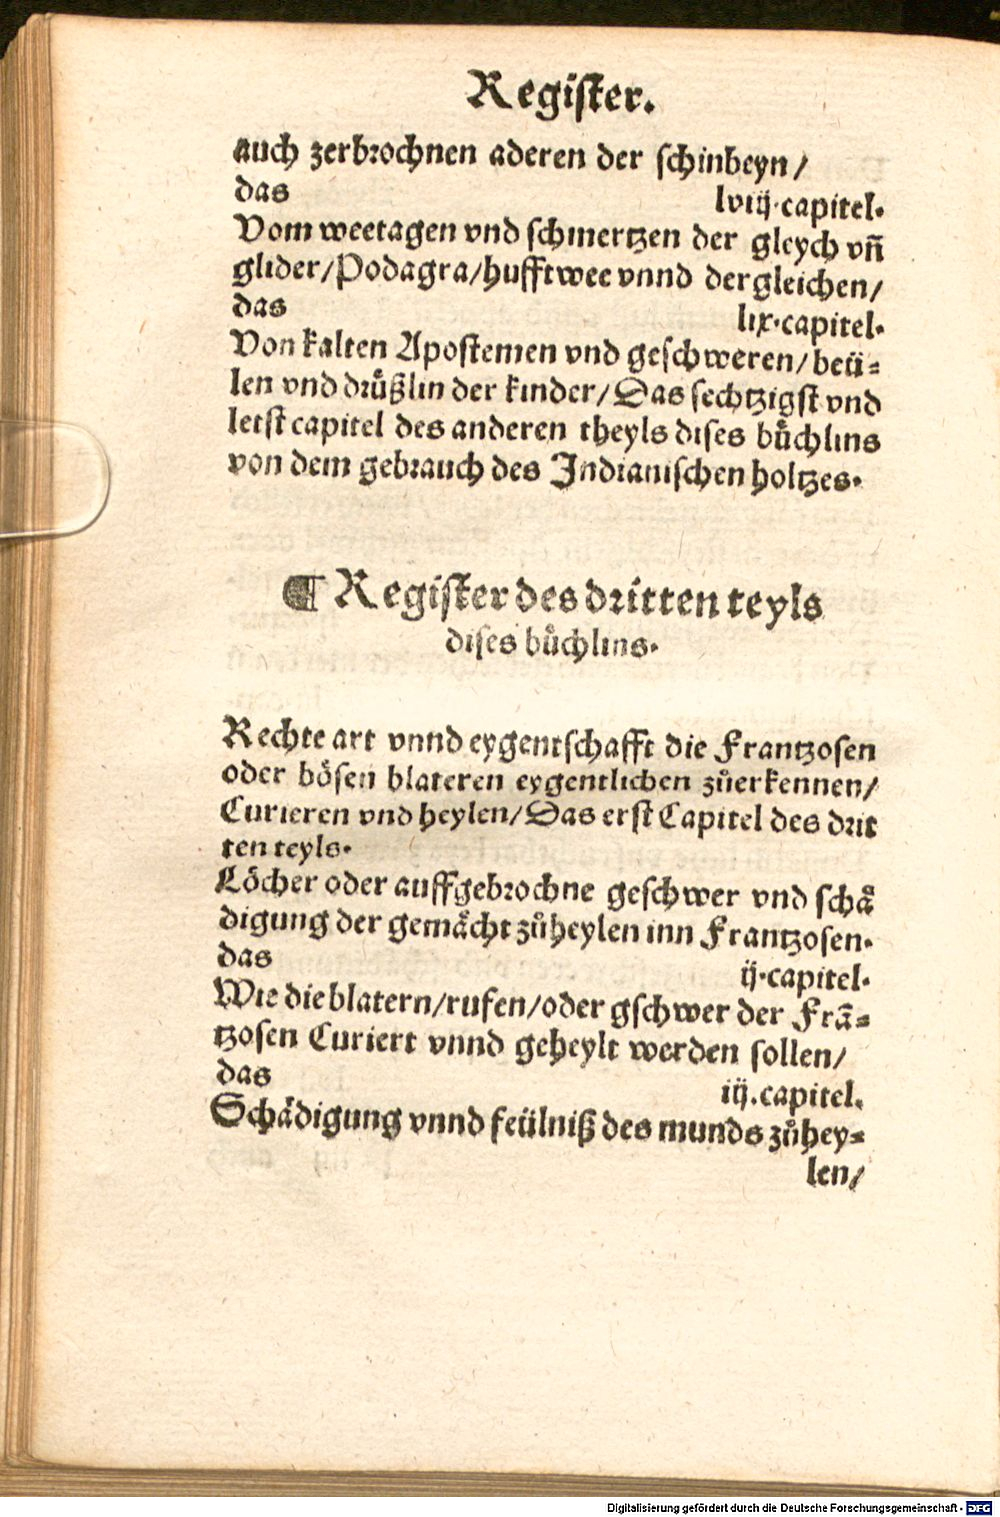 Register.
auch zerbrochnen aderen der schinbeyn/
das lviij.capitel.
Vom weetagen vnd schmertzen der gleych vñ
glider/Podagra/hufftwee vnnd der gleichen/
das lix.capitel.
Von kalten Apostemen vnd geschweren/beü⸗
len vnd druͤßlin der kinder/Das sechtzigst vnd
letst capitel des anderen theyls dises buͤchlins
von dem gebrauch des Indianischen holtzes.
¶ Register des dritten teyls
dises buͤchlins.
Rechte art vnnd eygentschafft die Frantzosen
oder boͤsen blateren eygentlichen zuͦerkennen/
Curieren vnd heylen/Das erst Capitel des drit
ten teyls.
Loͤcher oder auffgebrochne geschwer vnd schaͤ
digung der gemaͤcht zuͦheylen inn Frantzosen.
das ij.capitel.
Wie die blatern/rufen/oder gschwer der Frã⸗
tzosen Curiert vnnd geheylt werden sollen/
das iij.capitel.
Schaͤdigung vnnd feülniß des munds zuͦhey⸗
len/
Digitalisierung gefördert durch die Deutsche Forschungsgemeinschaft - DFG